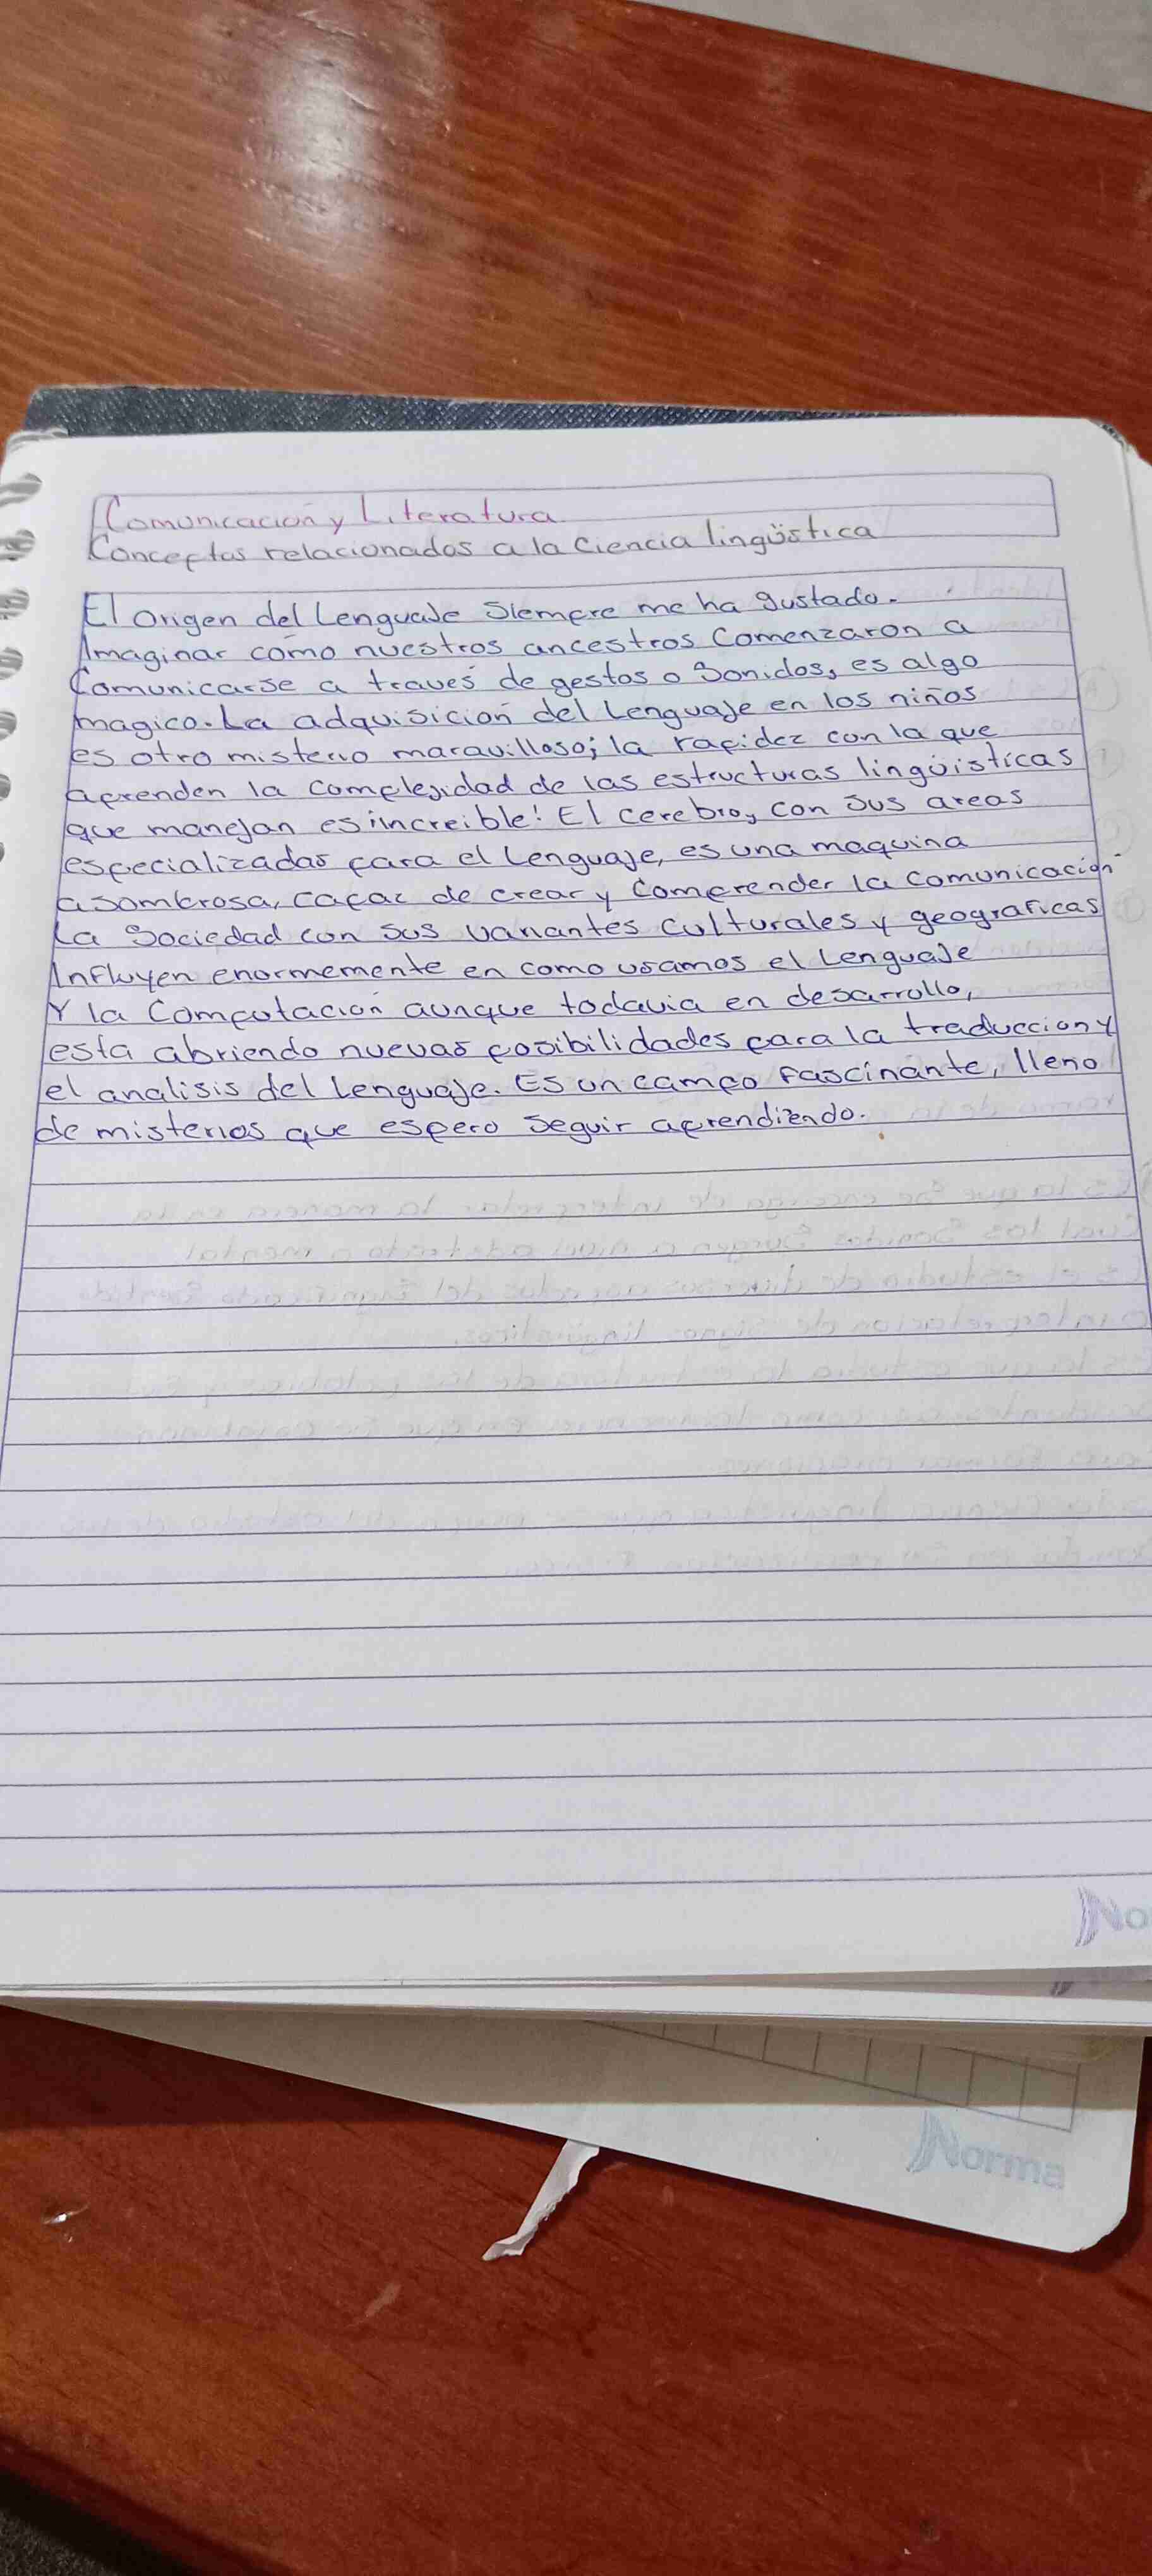 Comunicación y Literatura
Conceptos relacionados a la Ciencia lingüística
El Origen del Lenguaje Siempre me ha gustado.
Imaginar cómo nuestros ancestros Comenzaron a
Comunicarse a través de gestos o Sonidos, es algo
magico. La adquisición del Lenguaje en los niños
es otro misterio maravilloso; la rapidez con la que
aprenden la complejidad de las estructuras lingüísticas
que manejan es ¡increible! El cerebro, con sus areas
especializadas para el Lenguaje, es una maquina
asombrosa, capaz de crear y Comprender la comunicación
La Sociedad con sus variantes culturales y geograficas
Influyen enormemente en como usamos el Lenguaje
Y la Computación aunque todavia en desarrollo,
esta abriendo nuevas posibilidades para la traduccion y
el analisis del Lenguaje. Es un campo fascinante, lleno
de misterios que espero seguir aprendiendo.
Norma